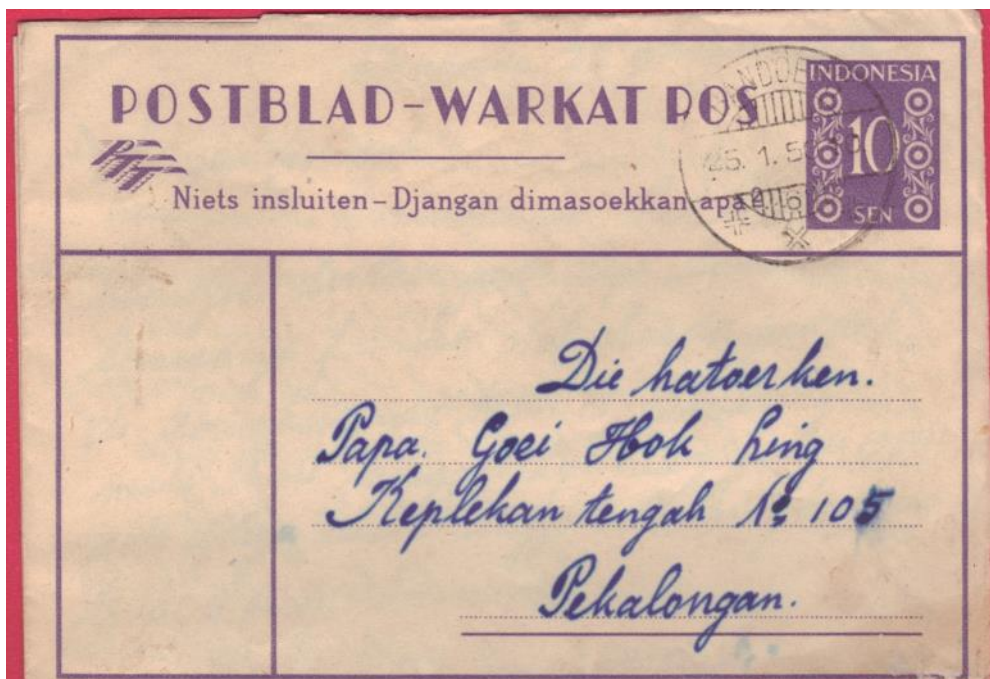 POSTBLAD-WARKAT POS
PTT
Niets insluiten-Djangan dimasoekkan apa2
INDONESIA
10
SEN
25. 1. 50
Die hatoerken.
Papa. Goei Hok hing
Keplekan tengah No 105
Pekalongan.